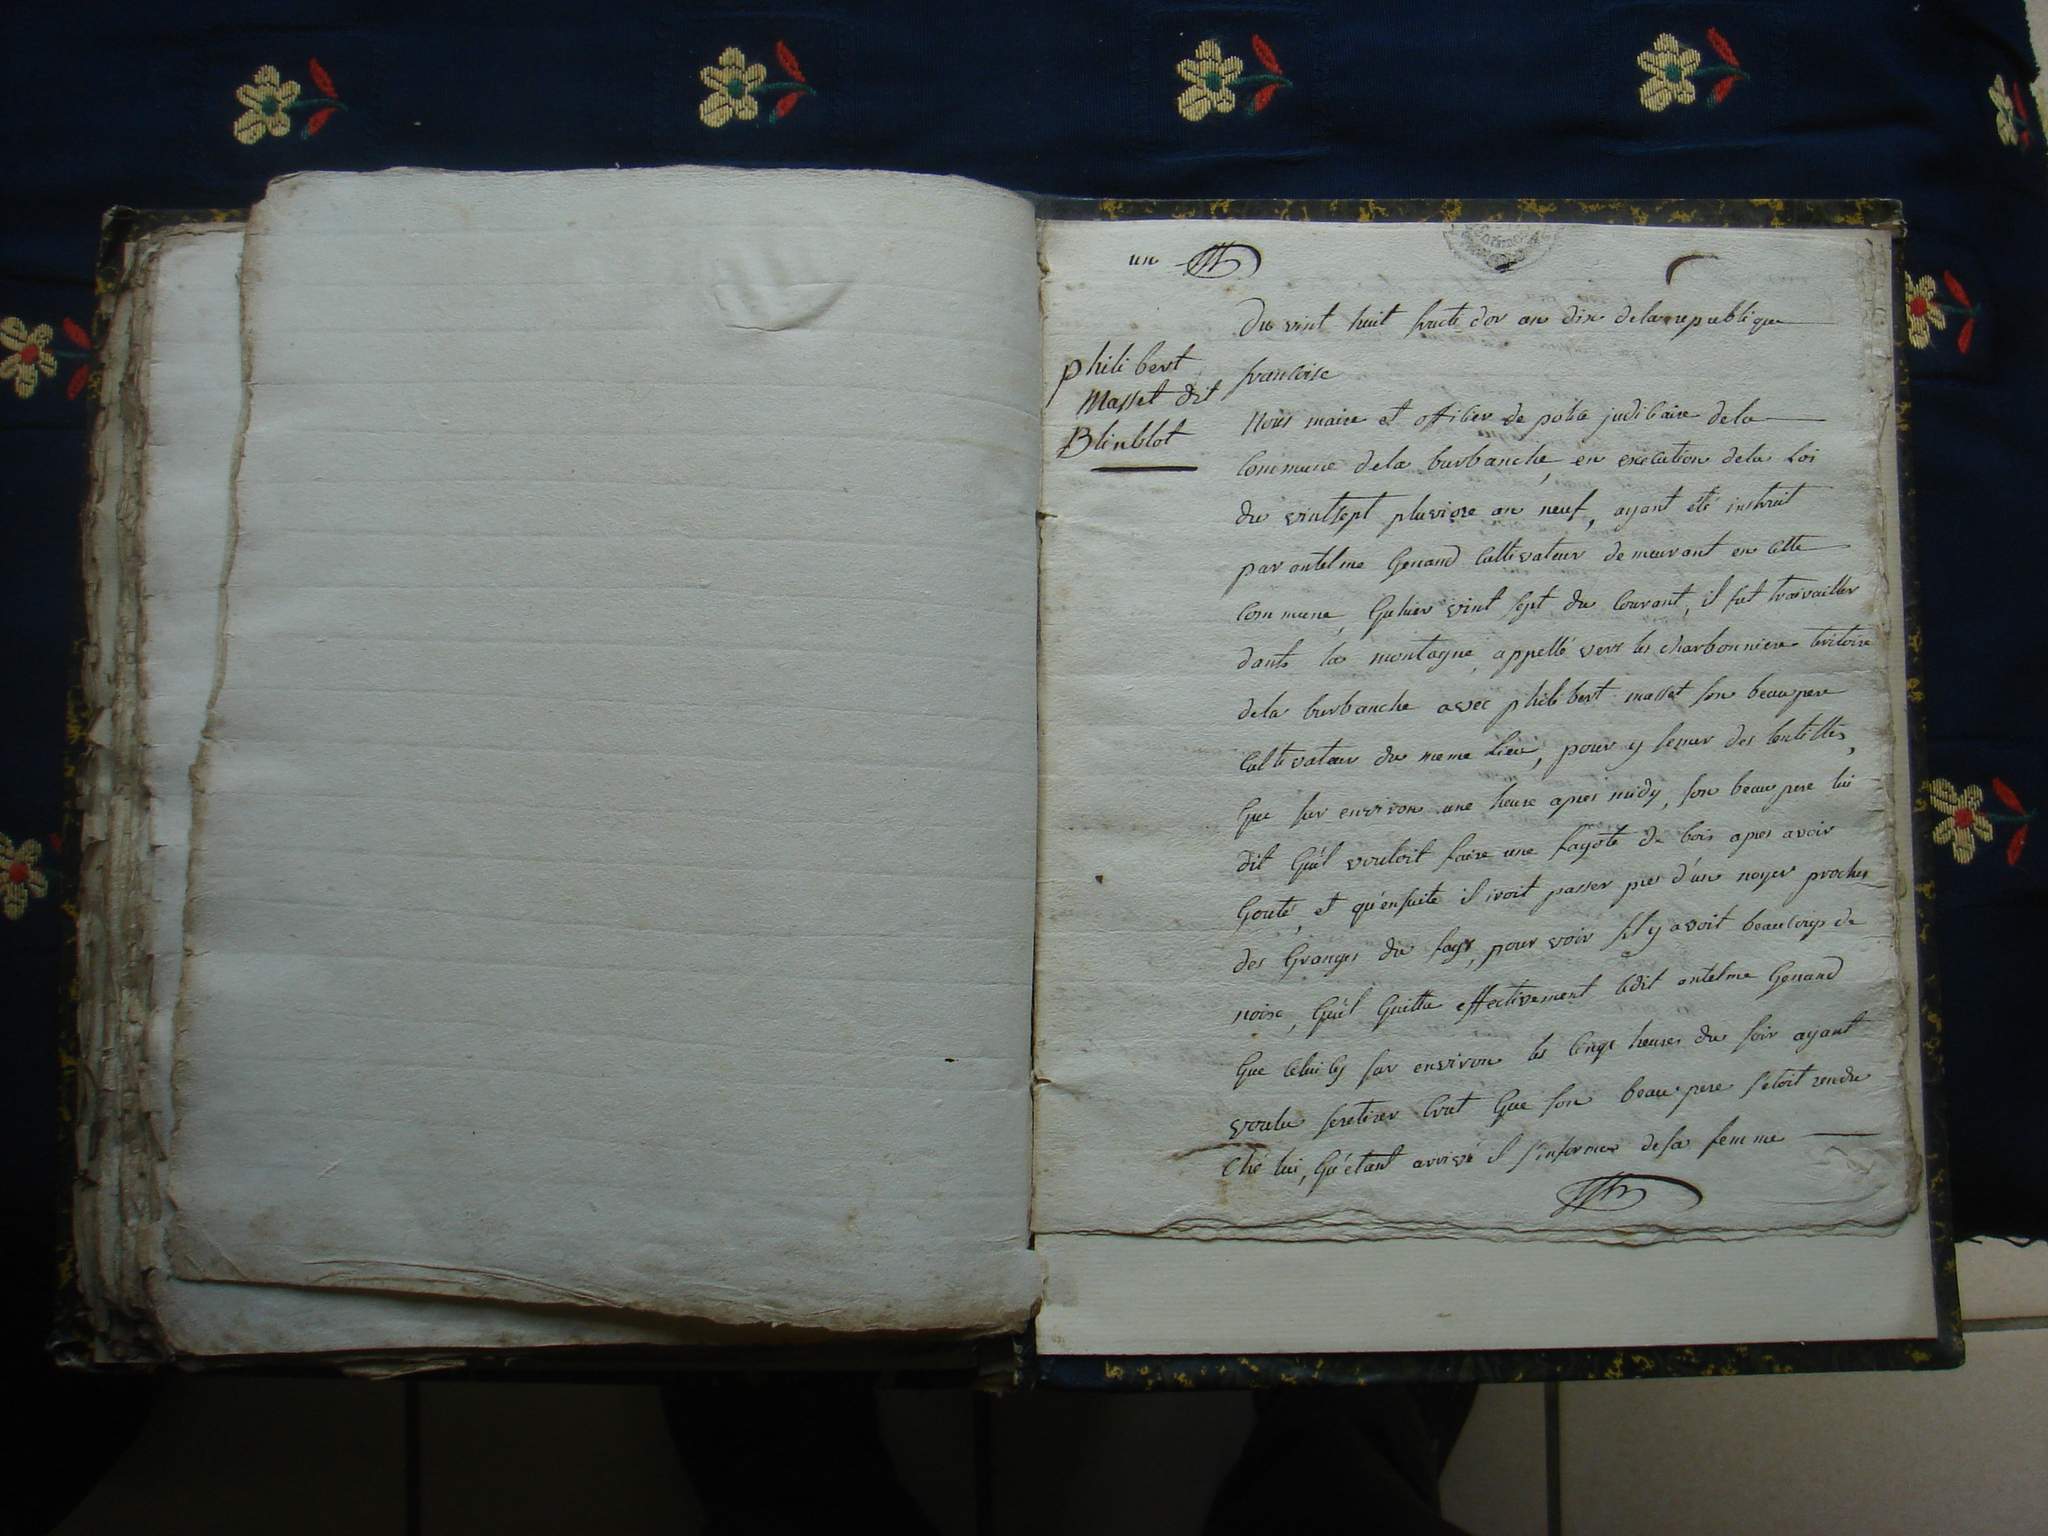 un
Philibert
Masset dit
Blinblot
Du vint huit fructidor an dix dela republique
francoise
Nous maire et officier de police judiciaire dela
Commune dela burbanche, en execution dela Loi
du vintsept pluviose an neuf, ayant été instruit
par antelme Genand Cultivateur demeurant en cette
Commune, Quhier vint sept du Courant, il fut travailler
dants la montagne, appellé vers les charbonniere teritoire
dela burbanche avec philibert masset son beaupere
Cultivateur du meme Lieu, pour y semer des lentilles,
Que sur environ une heure apres midy, son beaupere lui
dit Qu'il vouloit faire une fagote de bois apres avoir
Gouté, et qu'ensuite il iroit passer pres d'un noyer proches
des Granges du fays, pour voir s'il y avoit beaucoup de
noix, Qu'il Quitta effectivement ledit antelme Genand
Que Celui Cy sur environ les Cinqs heures du soir ayant
voulu seretirer Crut Que son beau pere s'etoit rendu
Ché lui, Qu'etant arrivé il s'informa desa femme